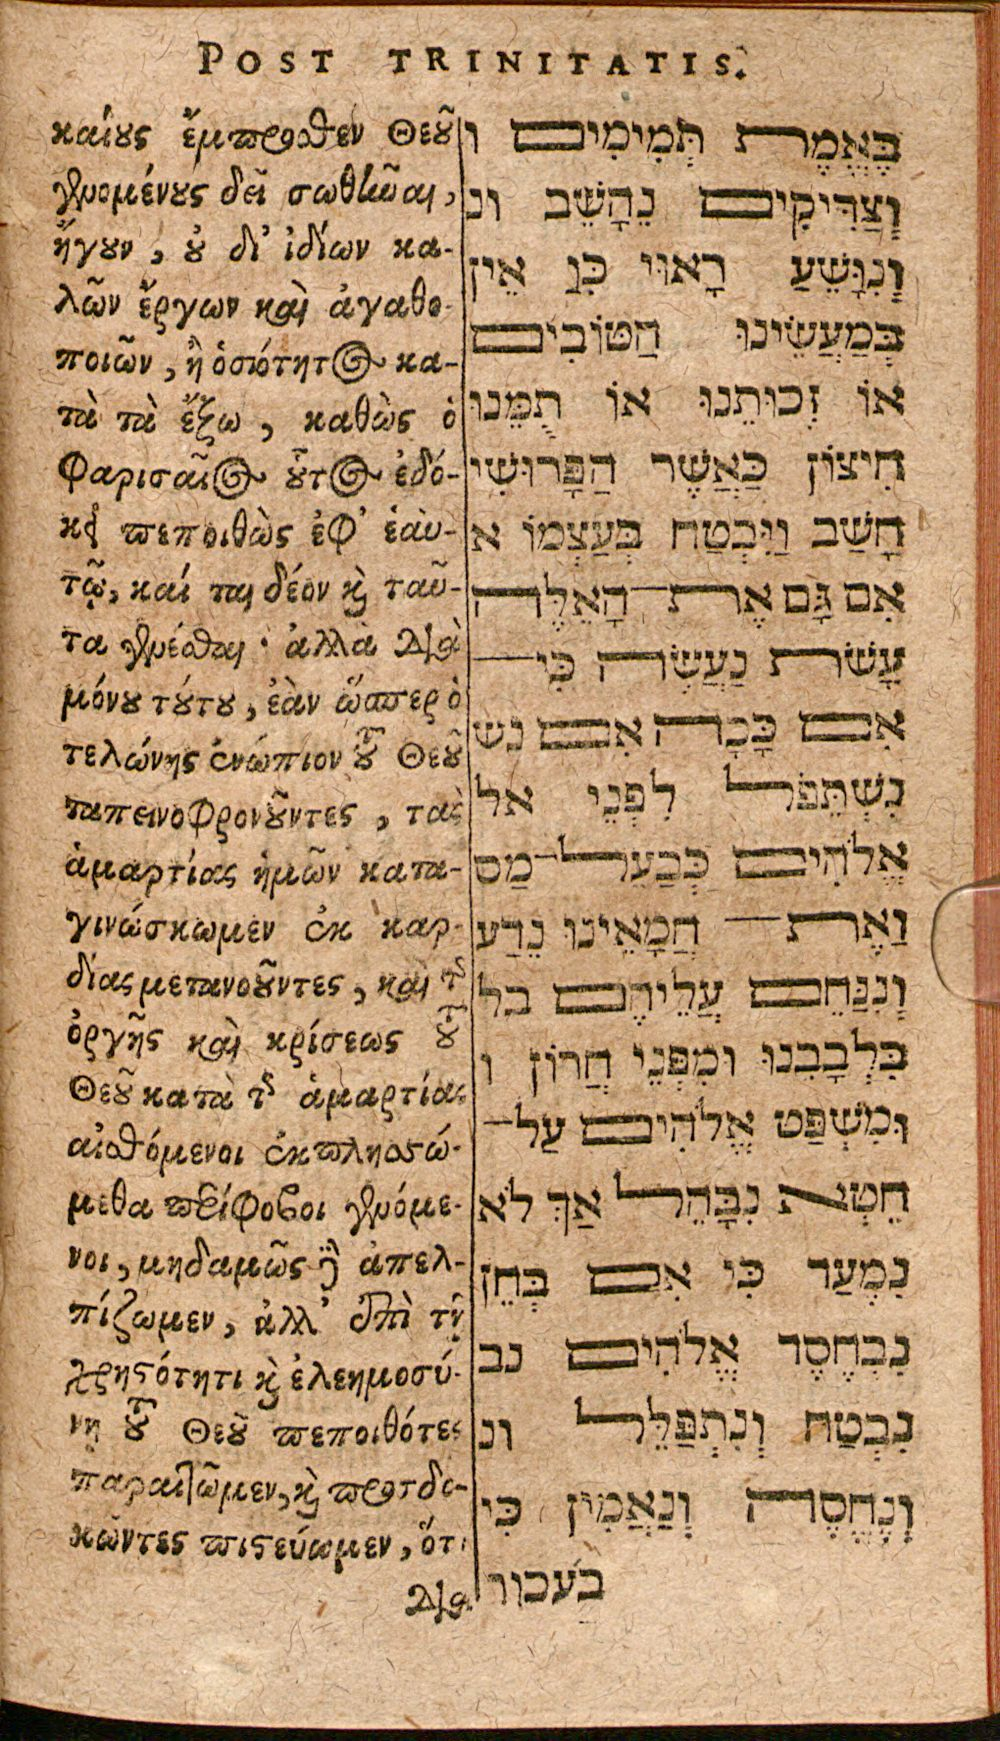 POST TRINITATIS.
καίους ἔμπροσθεν Θεοῦ
γενομένους δεῖ σωθῆναι,
ἤγουν, οὐ δι' ἰδίων κα-
λῶν ἔργων καὶ ἀγαθο-
ποιῶν, ἢ ὁσιότητος κα-
τὰ τὰ ἔξω, καθὼς ὁ
Φαρισαῖος οὗτος ἐδό-
κει πεποιθὼς ἐφ' ἑαυ-
τῷ, καί τοι δέον καὶ ταῦ-
τα γενέσθαι· ἀλλὰ διὰ
μόνου τούτου, ἐὰν ὥσπερ ὁ
τελώνης ἐνώπιον τοῦ Θεοῦ
ταπεινοφρονοῦντες, τὰς
ἁμαρτίας ἡμῶν κατα-
γινώσκωμεν ἐκ καρ-
δίας μετανοοῦντες, καὶ τῆς
ὀργῆς καὶ κρίσεως τοῦ
Θεοῦ κατὰ τῆς ἁμαρτίας
αἰσθόμενοι ἐκπλησσώ-
μεθα περίφοβοι γενόμε-
νοι, μηδαμῶς δὲ ἀπελ-
πίζωμεν, ἀλλ' ἐπὶ τῇ
χρηστότητι καὶ ἐλεημοσύ-
νῃ τοῦ Θεοῦ πεποιθότες
παραιτῶμεν, καὶ προσδο-
κῶντες πιστεύωμεν, ὅτι
διὰ
בֶּאֱמֶת תְּמִימִים ו
וְצַדִּיקִים נֵחָשֵׁב ונ
וְנִוָּשֵׁעַ רָאוּי כִּי אֵין
בְּמַעֲשֵׂינוּ הַטּוֹבִים
אוֹ זְכוּתֵנוּ אוֹ תֻמֵּנוּ
חִיצוֹן כַּאֲשֶׁר הַפָּרוּשִׁי
חָשַׁב וַיִּבְטַח בְּעַצְמוֹ א
אִם גַּם אֶת הָאֵלֶּה
עָשׂת נַעֲשֶׂה כִּי
אִם כָּכָה אִם נש
נִשְׁתַּפֵּל לִפְנֵי אל
אֱלֹהִים כְּבַעַל־ מַס
וְאֶת־ חֲטָאֵינוּ נֵדַע
וְנִנָּחֵם עֲלֵיהֶם בל
בִּלְבָבֵנוּ וּמִפְּנֵי חֲרוֹן ו
וּמִשְׁפַּט אֱלֹהִים עַל־
חֵטְא נִבָּהֵל אַךְ לֹא
נִמְעַד כִּי אִם בְּחֵן
נבְחֶסֶד אֱלֹהִים נב
נִבְטַח וְנִתְפַּלֵּל ונ
וְנֶחֱסֶה וְנַאֲמִין כִּי
בעכור